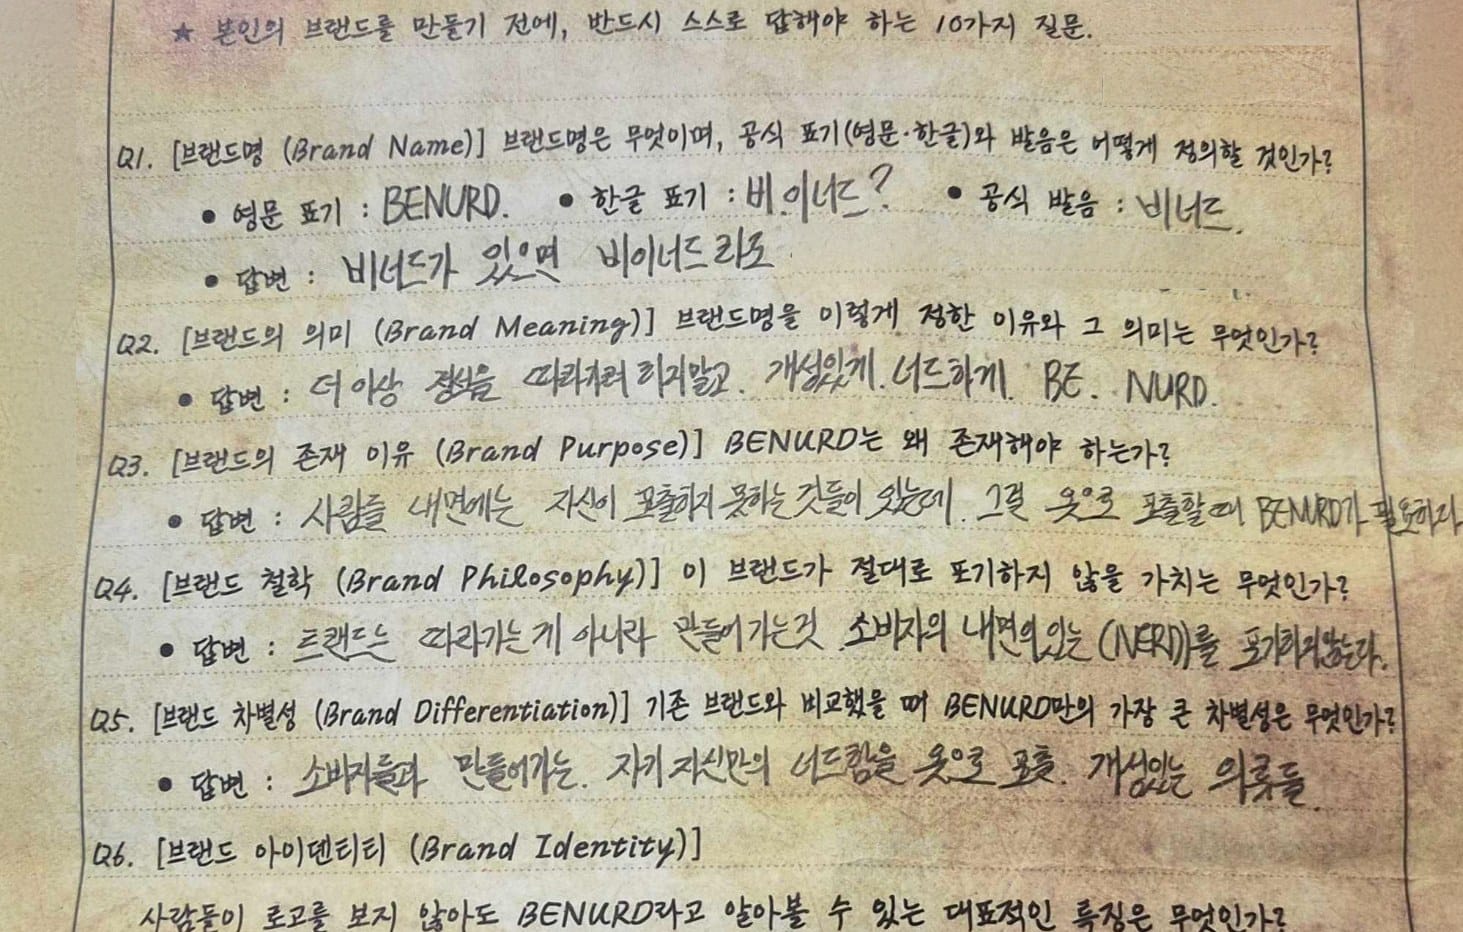 ★ 본인의 브랜드를 만들기 전에, 반드시 스스로 답해야 하는 10가지 질문.
Q1. [브랜드명 (Brand Name)] 브랜드명은 무엇이며, 공식 표기(영문·한글)와 발음은 어떻게 정의할 것인가?
• 영문 표기 : BENURD. • 한글 표기 : 비.이너드? • 공식 발음 : 비너드.
• 답변 : 비너드가 있으면 비이너드리로
Q2. [브랜드의 의미 (Brand Meaning)] 브랜드명을 이렇게 정한 이유와 그 의미는 무엇인가?
• 답변 : 더 이상 정석을 따라가려 하지말고. 개성있게. 너드하게. BE. NURD.
Q3. [브랜드의 존재 이유 (Brand Purpose)] BENURD는 왜 존재해야 하는가?
• 답변 : 사람들 내면에는 자신이 표출하지 못하는 것들이 있는데. 그걸 옷으로 표출할때 BENURD가 필요하다
Q4. [브랜드 철학 (Brand Philosophy)] 이 브랜드가 절대로 포기하지 않을 가치는 무엇인가?
• 답변 : 트랜드는 따라가는게 아니라 만들어 가는것 소비자의 내면의있는 (NERD)를 포기하지않는다.
Q5. [브랜드 차별성 (Brand Differentiation)] 기존 브랜드와 비교했을 때 BENURD만의 가장 큰 차별성은 무엇인가?
• 답변 : 소비자들과 만들어가는. 자기 자신만의 너드함을 옷으로 표출. 개성있는 의류들.
Q6. [브랜드 아이덴티티 (Brand Identity)]
사람들이 로고를 보지 않아도 BENURD라고 알아볼 수 있는 대표적인 특징은 무엇인가?